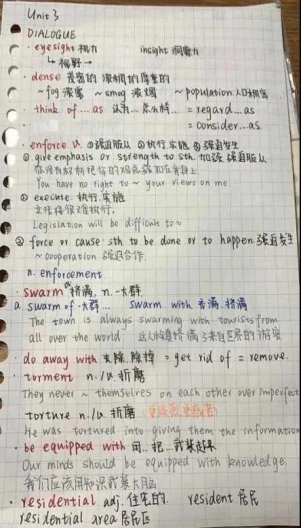 Unit 3
DIALOGUE
· eyesight 视力 insight 洞察力
视野
· dense 浓密的 浓稠的 厚重的
~fog 浓雾 ~smog 浓烟 ~population 人口稠密
· think of ... as 认为... 怎么样... = regard...as
= consider...as
· enforce v. ①强迫服从 ②执行.实施 ③强迫发生
① give emphasis or strength to sth. 加强 强迫服从
You have no right to ~ your views on me
② execute. 执行.实施
立法将很难执行.
Legislation will be difficult to ~
③ force or cause sth to be done or to happen 强迫发生
~ cooperation 强迫合作
n. enforcement
· swarm v. 挤满. n. 一大群
a swarm of 一大群... swarm with 充满.挤满
The town is always swarming with tourists from
all over the world. 这个小镇总挤满了来自世界的游客
· do away with 去除.除掉 = get rid of = remove.
· torment n./v. 折磨
They never ~ themselves on each other over imperfect
torture n./v. 折磨
He was tortured into giving them the information
· be equipped with 用...把...武装起来
Our minds should be equipped with knowledge.
我们应该用知识武装大脑
· residential adj. 住宅的. resident 居民
residential area 居民区